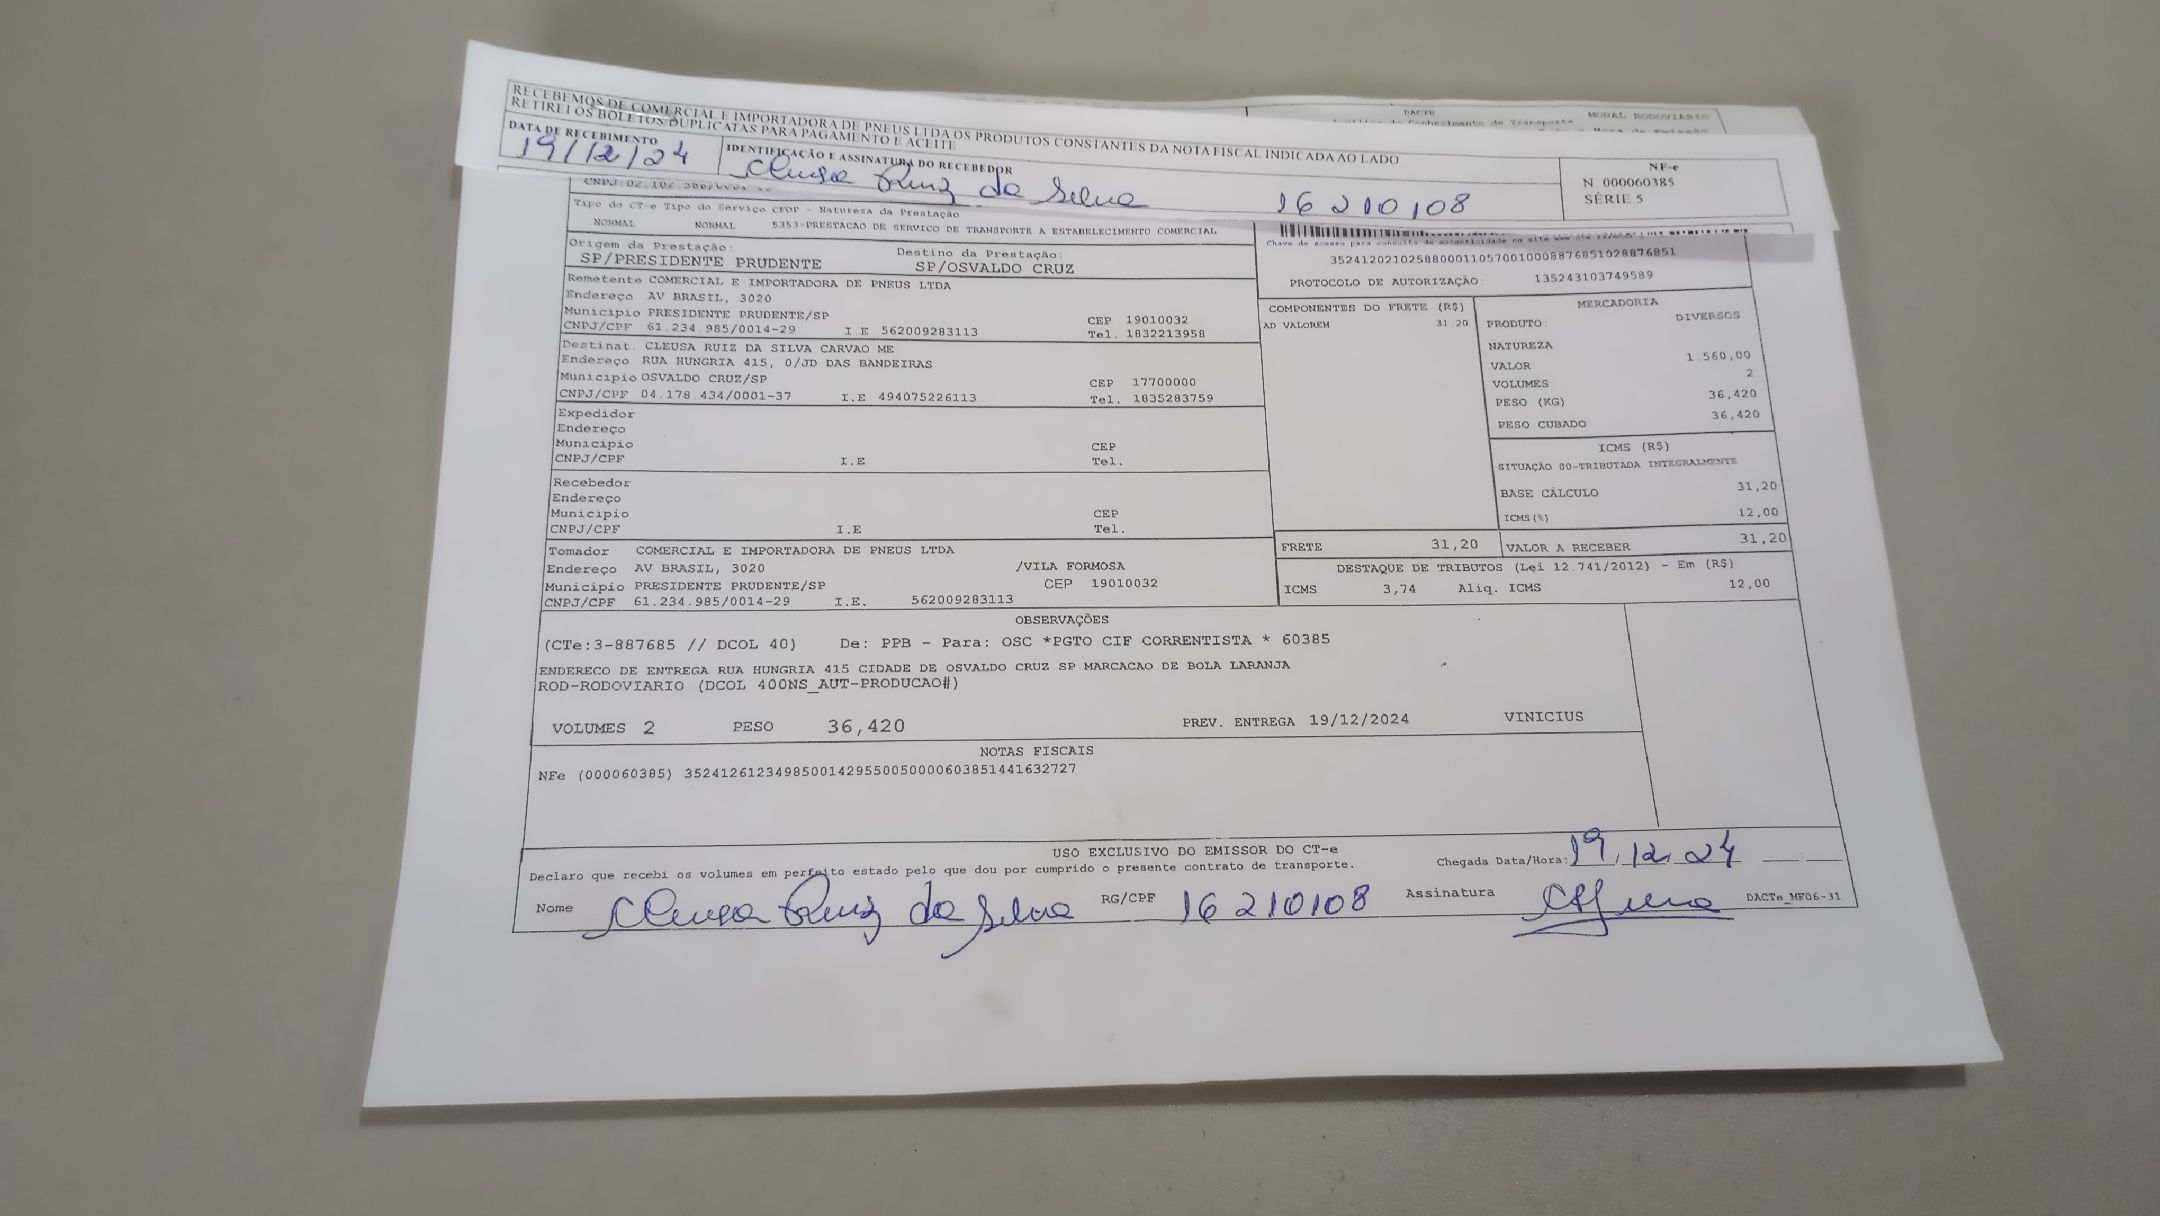 DACTE MODAL RODOVIÁRIO
RECEBEMOS DE COMERCIAL E IMPORTADORA DE PNEUS LTDA OS PRODUTOS CONSTANTES DA NOTA FISCAL INDICADA AO LADO
RETIREI OS BOLETOS DUPLICATAS PARA PAGAMENTO E ACEITE
DATA DE RECEBIMENTO IDENTIFICAÇÃO E ASSINATURA DO RECEBEDOR NF-e
19/12/24 Cleusa Ruiz da Silva 16210108 N 000060385
SÉRIE 5
Tipo do CT-e Tipo do Serviço CFOP - Natureza da Prestação
NORMAL NORMAL 5353-PRESTACAO DE SERVICO DE TRANSPORTE A ESTABELECIMENTO COMERCIAL
Chave de Acesso para consulta de autenticidade no site
Origem da Prestação: Destino da Prestação:
SP/PRESIDENTE PRUDENTE SP/OSVALDO CRUZ
35241202102588000110570010008876851028876851
PROTOCOLO DE AUTORIZAÇÃO: 135243103749589
Remetente COMERCIAL E IMPORTADORA DE PNEUS LTDA
Endereço AV BRASIL, 3020
Município PRESIDENTE PRUDENTE/SP CEP 19010032
CNPJ/CPF 61.234.985/0014-29 I.E 562009283113 Tel. 1832213958
Destinat. CLEUSA RUIZ DA SILVA CARVAO ME
Endereço RUA HUNGRIA 415, 0/JD DAS BANDEIRAS
Município OSVALDO CRUZ/SP CEP 17700000
CNPJ/CPF 04.178.434/0001-37 I.E 494075226113 Tel. 1835283759
Expedidor
Endereço
Município CEP
CNPJ/CPF I.E Tel.
Recebedor
Endereço
Município CEP
CNPJ/CPF I.E Tel.
Tomador COMERCIAL E IMPORTADORA DE PNEUS LTDA
Endereço AV BRASIL, 3020 /VILA FORMOSA
Município PRESIDENTE PRUDENTE/SP CEP 19010032
CNPJ/CPF 61.234.985/0014-29 I.E. 562009283113
COMPONENTES DO FRETE (R$)
AD VALOREM 31,20
MERCADORIA
PRODUTO: DIVERSOS
NATUREZA
VALOR 1.560,00
VOLUMES 2
PESO (KG) 36,420
PESO CUBADO 36,420
ICMS (R$)
SITUAÇÃO 00-TRIBUTADA INTEGRALMENTE
BASE CÁLCULO 31,20
ICMS(%) 12,00
FRETE 31,20 VALOR A RECEBER 31,20
DESTAQUE DE TRIBUTOS (Lei 12.741/2012) - Em (R$)
ICMS 3,74 Aliq. ICMS 12,00
OBSERVAÇÕES
(CTe:3-887685 // DCOL 40) De: PPB - Para: OSC *PGTO CIF CORRENTISTA * 60385
ENDERECO DE ENTREGA RUA HUNGRIA 415 CIDADE DE OSVALDO CRUZ SP MARCACAO DE BOLA LARANJA
ROD-RODOVIARIO (DCOL 400NS_AUT-PRODUCAO#)
VOLUMES 2 PESO 36,420 PREV. ENTREGA 19/12/2024 VINICIUS
NOTAS FISCAIS
NFe (000060385) 35241261234985001429550050000603851441632727
USO EXCLUSIVO DO EMISSOR DO CT-e
Declaro que recebi os volumes em perfeito estado pelo que dou por cumprido o presente contrato de transporte. Chegada Data/Hora: 19.12.24
Nome Cleusa Ruiz da Silva RG/CPF 16210108 Assinatura DACTe_MF06-31